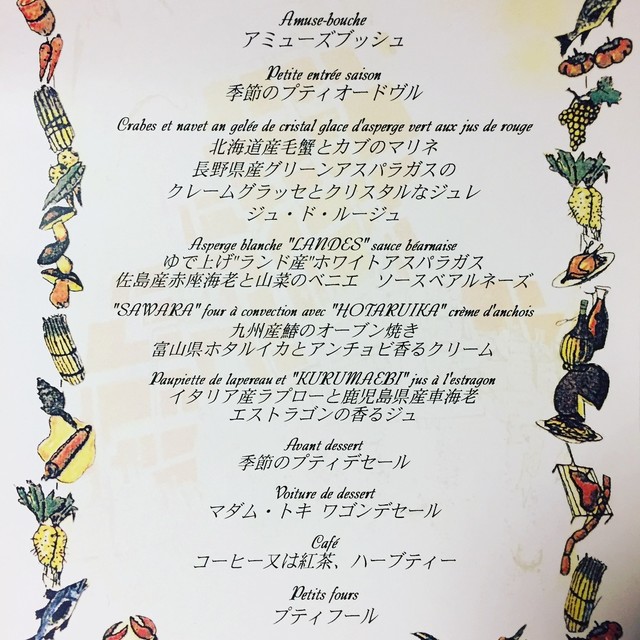 Amuse-bouche
アミューズブッシュ
Petite entrée saison
季節のプティオードヴル
Crabes et navet an gelée de cristal glace d'asperge vert aux jus de rouge
北海道産毛蟹とカブのマリネ
長野県産グリーンアスパラガスの
クレームグラッセとクリスタルなジュレ
ジュ・ド・ルージュ
Asperge blanche "LANDES" sauce béarnaise
ゆで上げ"ランド産"ホワイトアスパラガス
佐島産赤座海老と山菜のベニエ　ソースベアルネーズ
"SAWARA" four à convection avec "HOTARUIKA" crème d'anchois
九州産鰆のオーブン焼き
富山県ホタルイカとアンチョビ香るクリーム
Paupiette de lapereau et "KURUMAEBI" jus à l'estragon
イタリア産ラプローと鹿児島県産車海老
エストラゴンの香るジュ
Avant dessert
季節のプティデセール
Voiture de dessert
マダム・トキ ワゴンデセール
Café
コーヒー又は紅茶、ハーブティー
Petits fours
プティフール